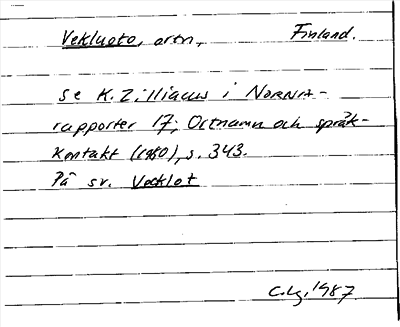 Vekluoto, ortn., Finland.
se K. Zilliacus i NORNA-
rapporter 17, Ortnamn och språk-
kontakt (1980), s. 343.
På sv. Vecklot
C.Lg. 1987